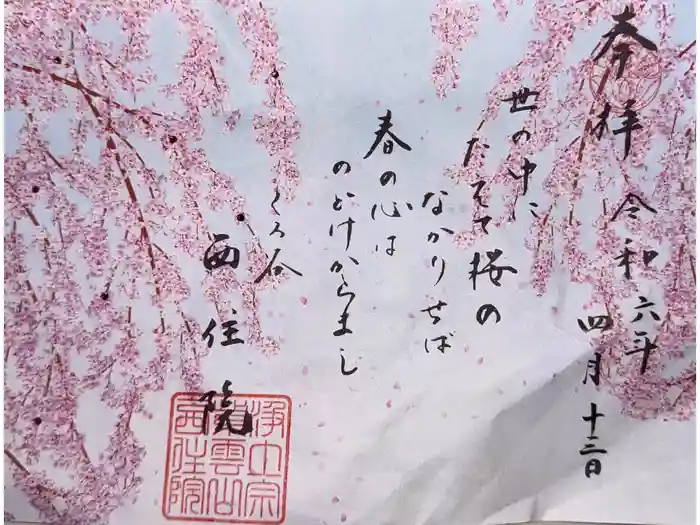 奉拝
令和六年
四月十三日
世の中に
たえて桜の
なかりせば
春の心は
のどけからまし
くろ谷
西住院
浄土宗
紫雲山
西住院